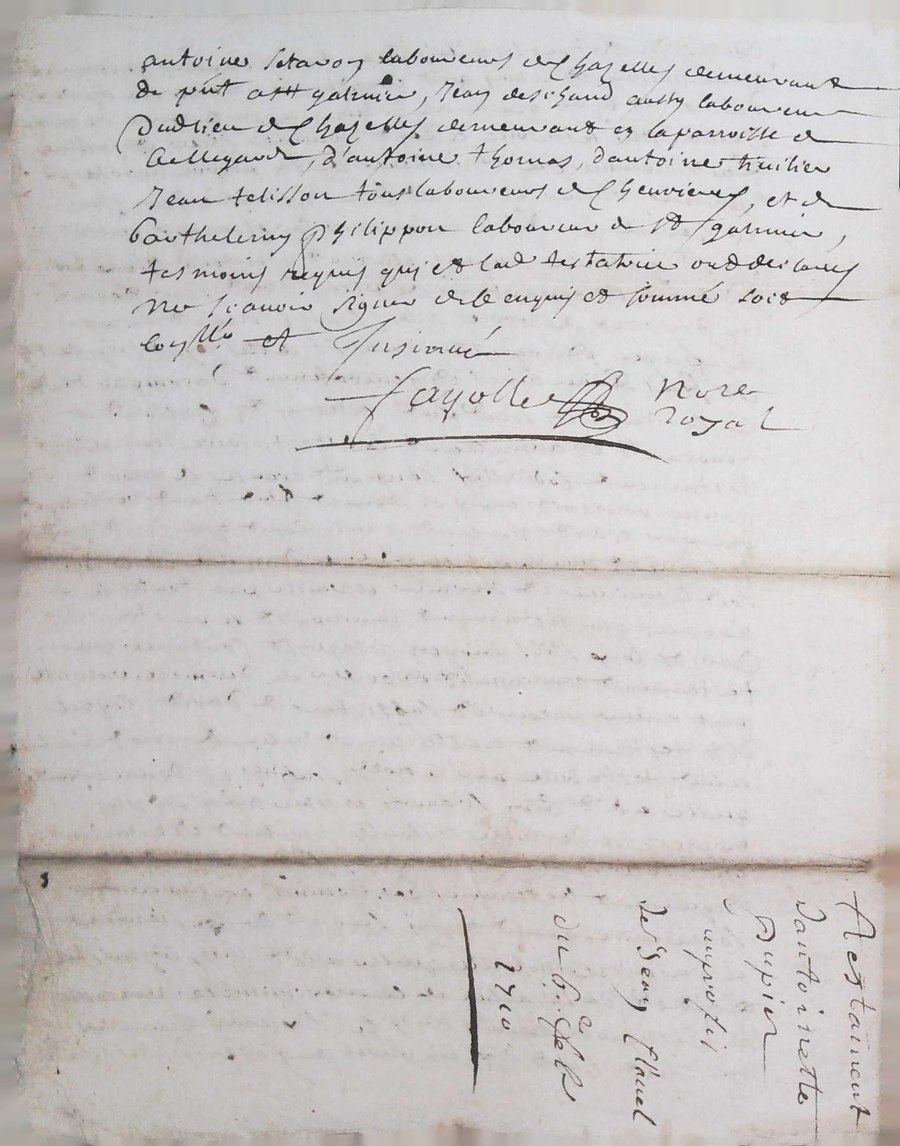 antoine laboureur de Chazelles demeurant
de pnt a st galmier, Jean deschaud aussy laboureur
Dudlieu de Chazelles demeurant en la parroisse de
bellegarde, d'antoine thomas, d'antoine
Jean tous laboureurs de Chevrieres, et de
barthelemy philippon laboureur de st galmier,
tesmoins requis qui et lad testatrice ont declarés
ne scavoir signer de ce enquis et sommé soit
et Insinué
Fayolle Nore
royal
Testament
dantoinette
Dupier
auprofit
de Jean Clavel
du 6e
1710